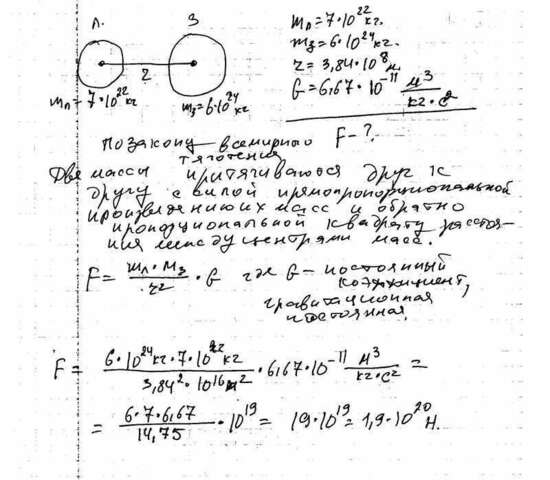 Л. З
r
mл = 7·10²² кг
mз = 6·10²⁴ кг
mл = 7·10²² кг.
mз = 6·10²⁴ кг.
r = 3,84·10⁸ м.
G = 6,67·10⁻¹¹ м³/кг·с²
F - ?
По закону всемирного
тяготения
Две массы притягиваются друг к
другу с силой прямопропорциональной
произведению их масс и обратно
пропорциональной квадрату расстоя-
ния между центрами масс.
F = mл·Mз/r² · G где G - постоянный
коэффициент,
гравитационная
постоянная.
F = 6·10²⁴кг·7·10²²кг/3,84²·10¹⁶м² · 6,67·10⁻¹¹ м³/кг·с² =
= 6·7·6,67/14,75 · 10¹⁹ = 19·10¹⁹ = 1,9·10²⁰ Н.